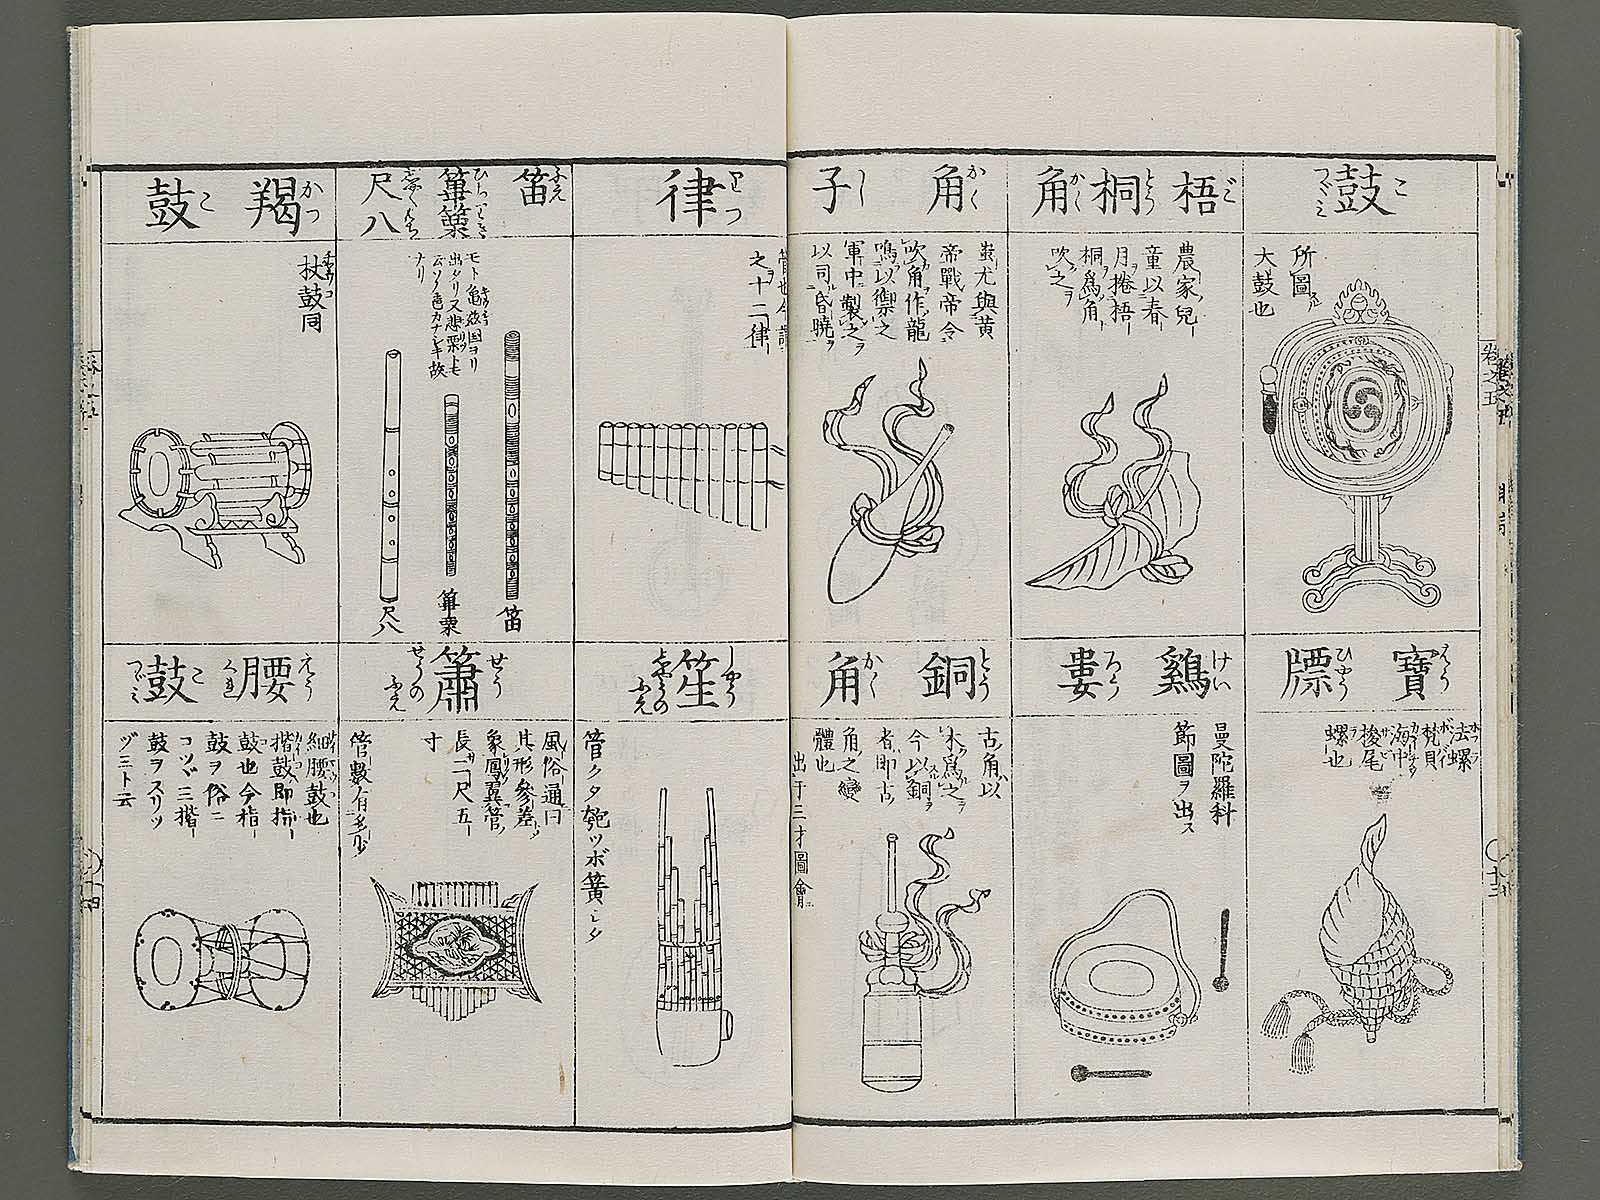 鼓
こ
つゞみ
所圖ハ
大鼓也
梧桐角
ご とう かく
農家兒
童以春
月捲梧
桐爲角
吹之ヲ
角子
かく し
蚩尤與黄
帝戰帝令
吹角作龍
鳴以禦之
軍中製之ヲ
以司昏曉ヲ
寶螵
ひやう
法螺
梵貝
海中
梭尾
螺也
鷄婁
けい ろう
曼陀羅科
節圖ヲ出ス
銅角
とう かく
古角以
木爲之ヲ
今以銅ヲ
者即古
角之變
體也
出于三才圖會ニ
律
りつ
之十二律
笛
ふえ
篳篥
ひちりき
尺八
しやくはち
モト亀茲国ヨリ
出タリ又悲栗トモ
云ソノ色カナシキ故
ナリ
笛
篳栗
尺八
羯鼓
かつ こ
杖鼓同
笙
しやう
しやうのふえ
管クタ匏ツボ簧シタ
簫
せう
せうのふえ
風俗通曰
其形參差
象鳳翼管
長二尺五
寸
管數有多少
腰鼓
えう こ
くれつゞみ
細腰鼓也
揩鼓即揩
鼓也今楷
鼓ヲ俗ニ
コツヾミ揩
鼓ヲスリツ
ヅミト云
卷之五